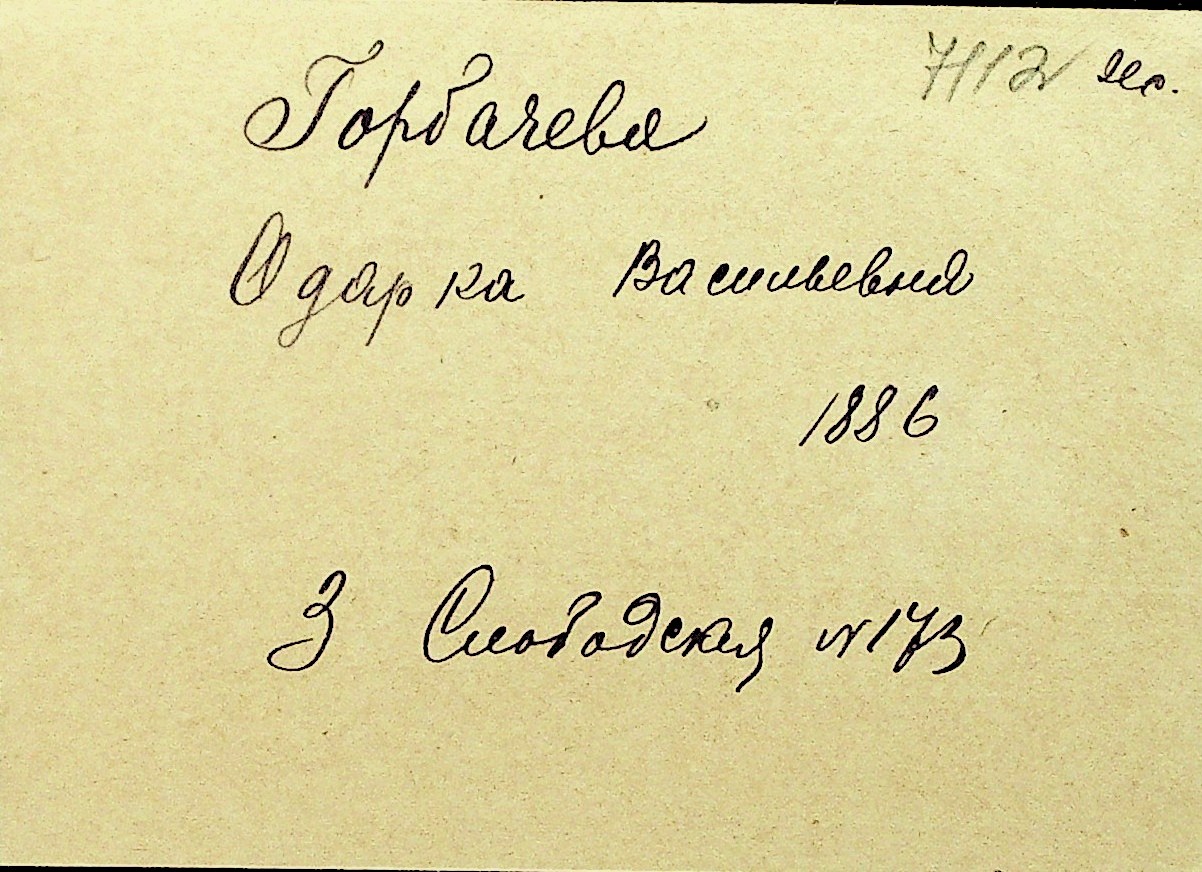 7112
Горбачева
Одарка Васильевна
1886
3 Слободская №173